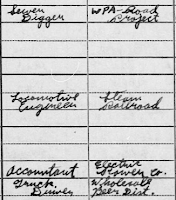 Sewer Digger
WPA-Road Project
Locomotive Engineer
Steam Railroad
Accountant
Electric Power Co.
Truck Driver
Wholesale Beer Dist.